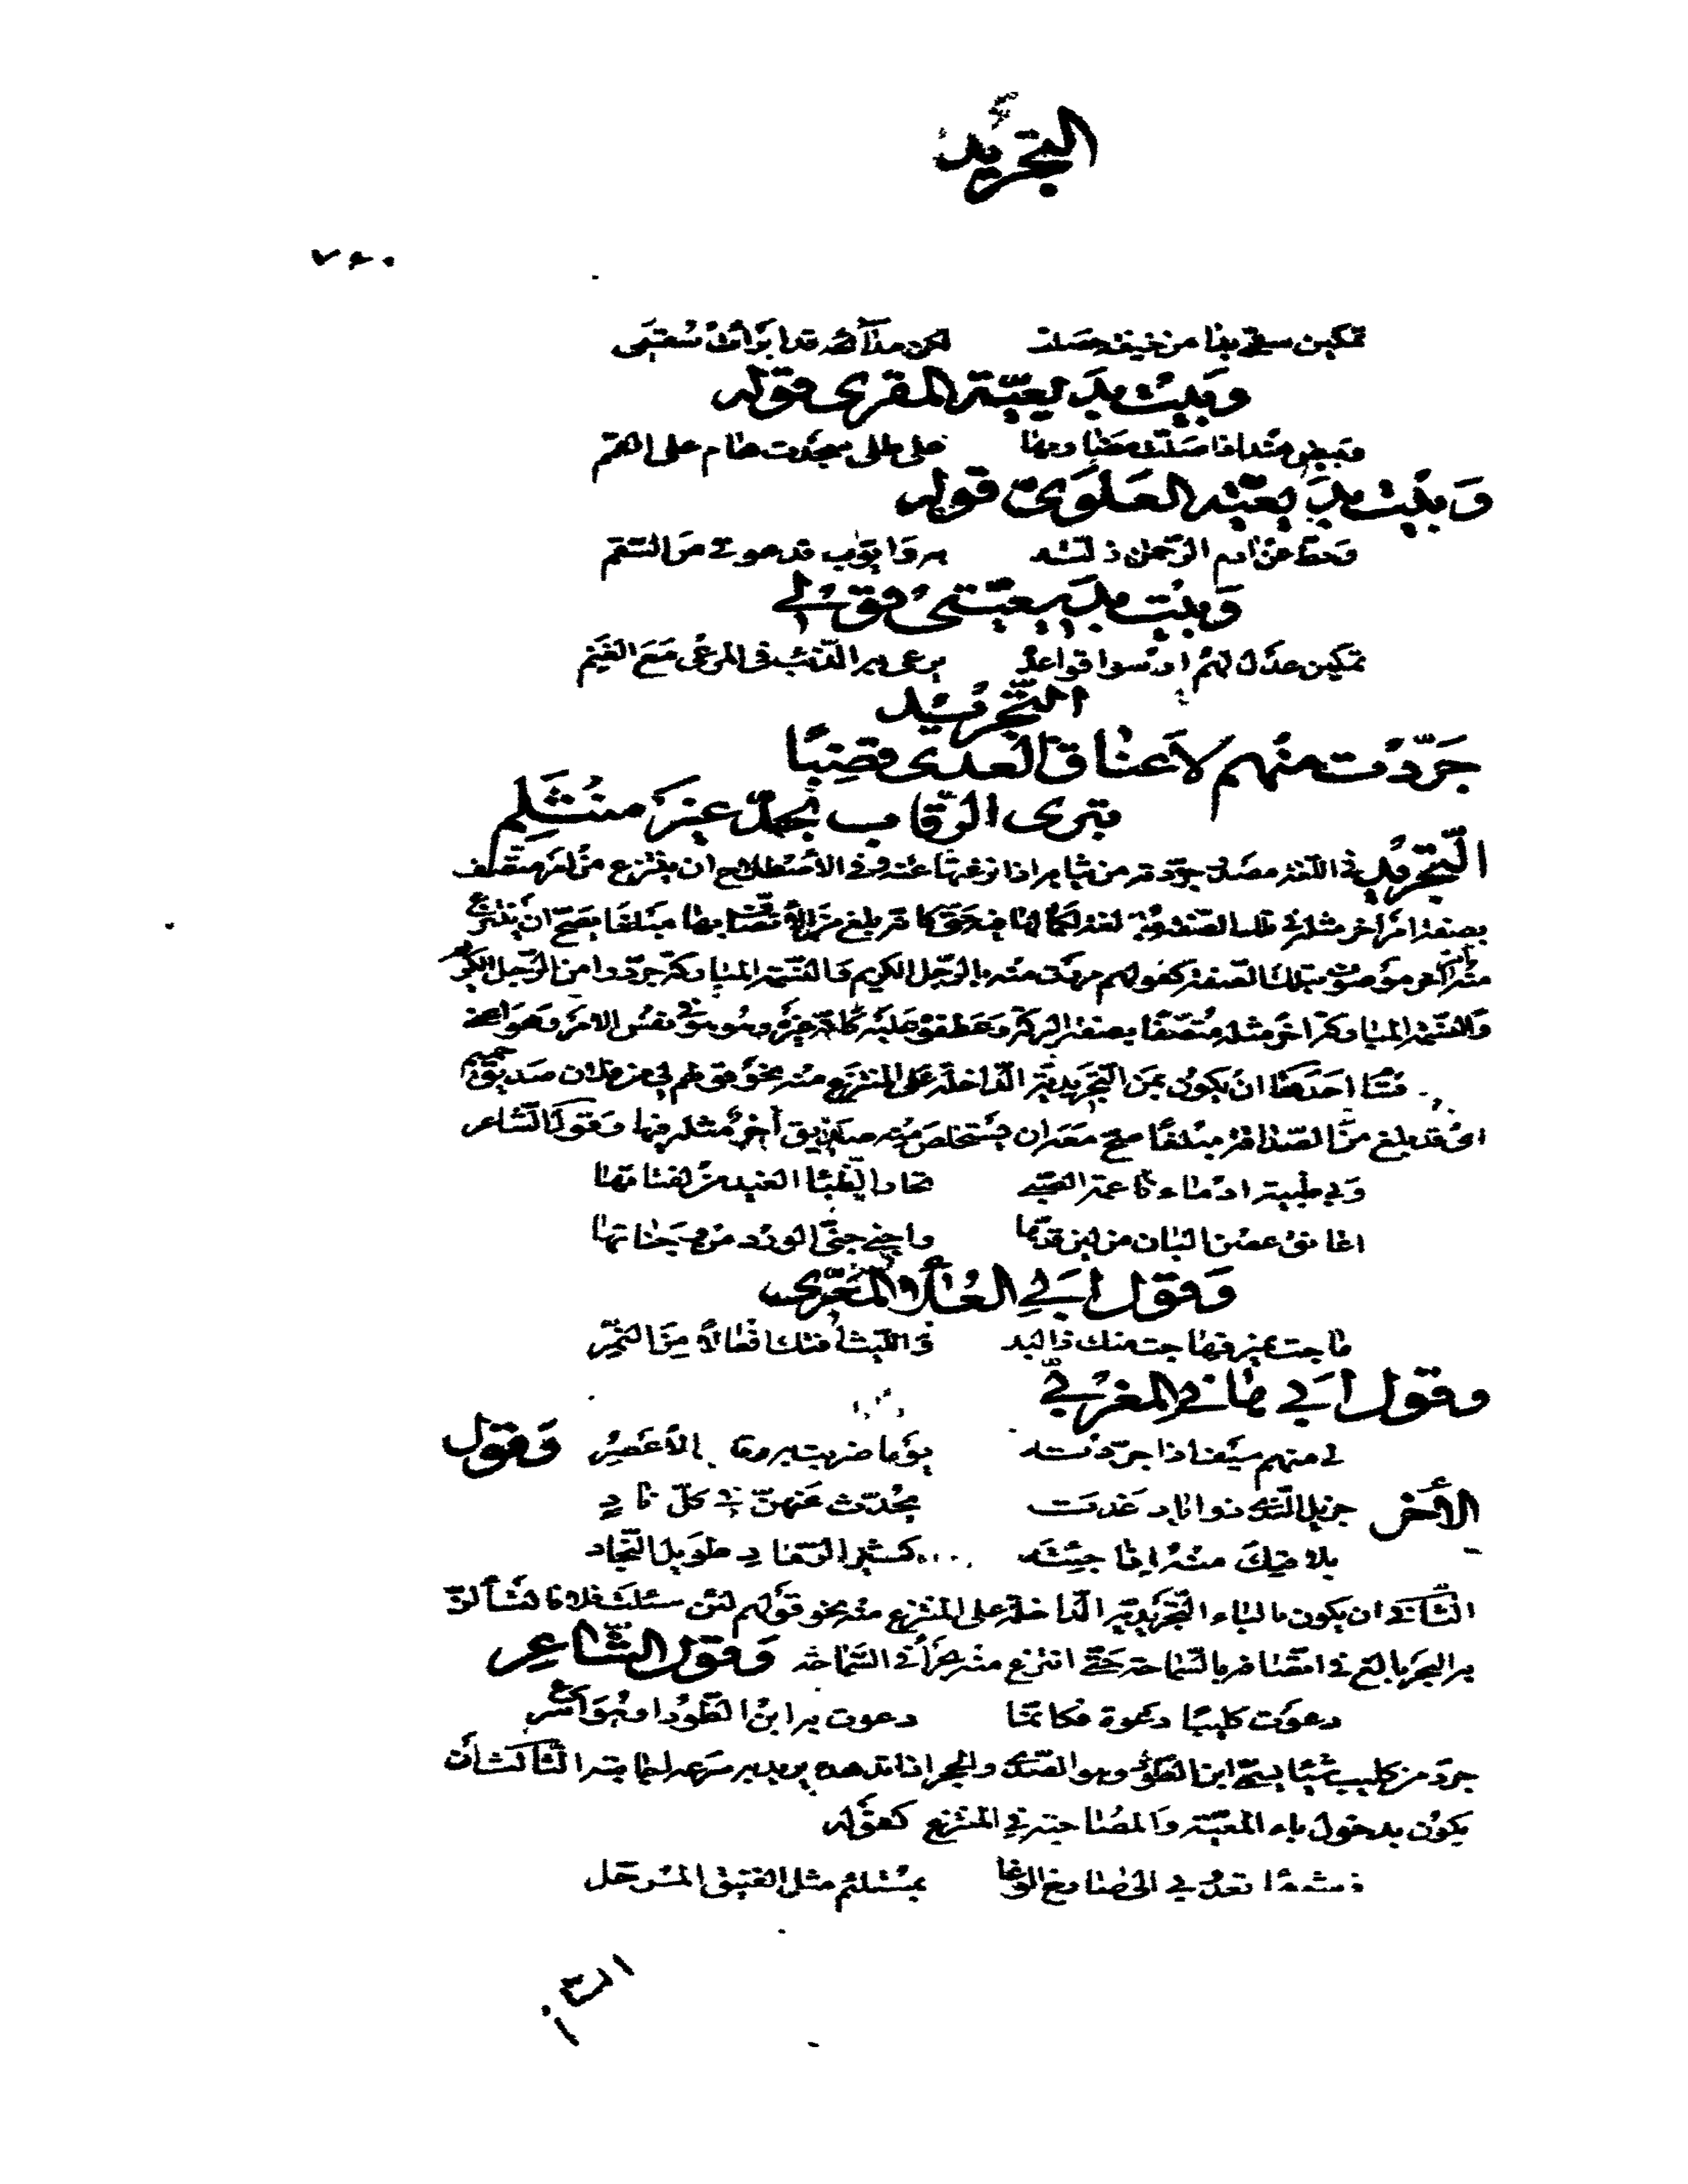 التجريد
٧٤٠
تمكين سقمي بدا من خيفة حصلت لكن مدائحه قد أبرأت سقمي
وبيت بديعية المقري قوله
على طلى مجدت هام على القمم
وبيت بديعية العلوي قوله
وحط عن آدم الرحمن زلته به وأيوب قد عوفي من السقم
وبيت بديعيتي قولي
تمكين عدل لهم أرسوا قواعده يرعى به الذئب في المرعى مع الغنم
التجريد
جردت منهم لأعناق العدى قضبا
تبري الرقاب بحد غير منثلم
التجريد في اللغة مصدر جردته من ثيابه إذا نزعتها عنه وفي الاصطلاح أن ينتزع من أمر متصف
بصفة أمر آخر مثله في تلك الصفة مبالغة لكمالها فيه حتى كأنه بلغ من الاتصاف بها مبلغا يصح أن ينتزع
منه أمر آخر موصوف بتلك الصفة كقولهم مررت منه بالرجل الكريم والنسمة المباركة جردوا من الرجل الكريم
والنسمة المباركة آخر مثله متصفا بصفة البركة وعطفوه عليه كأنه غيره وهو هو في نفس الأمر وهو
أحدها أن يكون بمن التجريدية الداخلة على المنتزع منه نحو قولهم لي من فلان صديق حميم
أي قد بلغ من الصداقة مبلغا صح معه أن يستخلص منه صديق آخر مثله فيها وقول الشاعر
وبي ظبية أدماء ناعمة الصبى تحار الظباء الغيد من لفتاتها
أعانق غصن البان من لين قدها وأجني جني الورد من وجناتها
وقول أبي العلاء المعري
ماجت نمير فهاجت منك ذا لبد والليث أفتك أفعالا من النمر
وقول ابن هاني المغربي
لي منهم سيف إذا جردته يوما ضربت به رقاب الأعصر وقول
الآخر جزيل الندى ذو أياد غدت يحدث عنهن في كل ناد
يلاقيك منه إذا جئته كثير الرماد طويل النجاد
الثاني أن يكون بالباء التجريدية الداخلة على المنتزع منه نحو قولهم لئن سئلت فلانا لتسألن
به البحر بالغ في اتصافه بالسماحة حتى انتزع منه بحرا في السماحة وقول الشاعر
دعوت كليبا دعوة فكأنما دعوت به ابن الطود أو هو أسرع
جرد من كليب شيئا يسمى ابن الطود وهو الصدى والحجر إذا تدهده يريد به سرعة إجابته الثالث أن
يكون بدخول باء المعية والمصاحبة في المنتزع كقوله
تعدو بي إلى صارخ الوغى بمستلئم مثل الفنيق المرحل